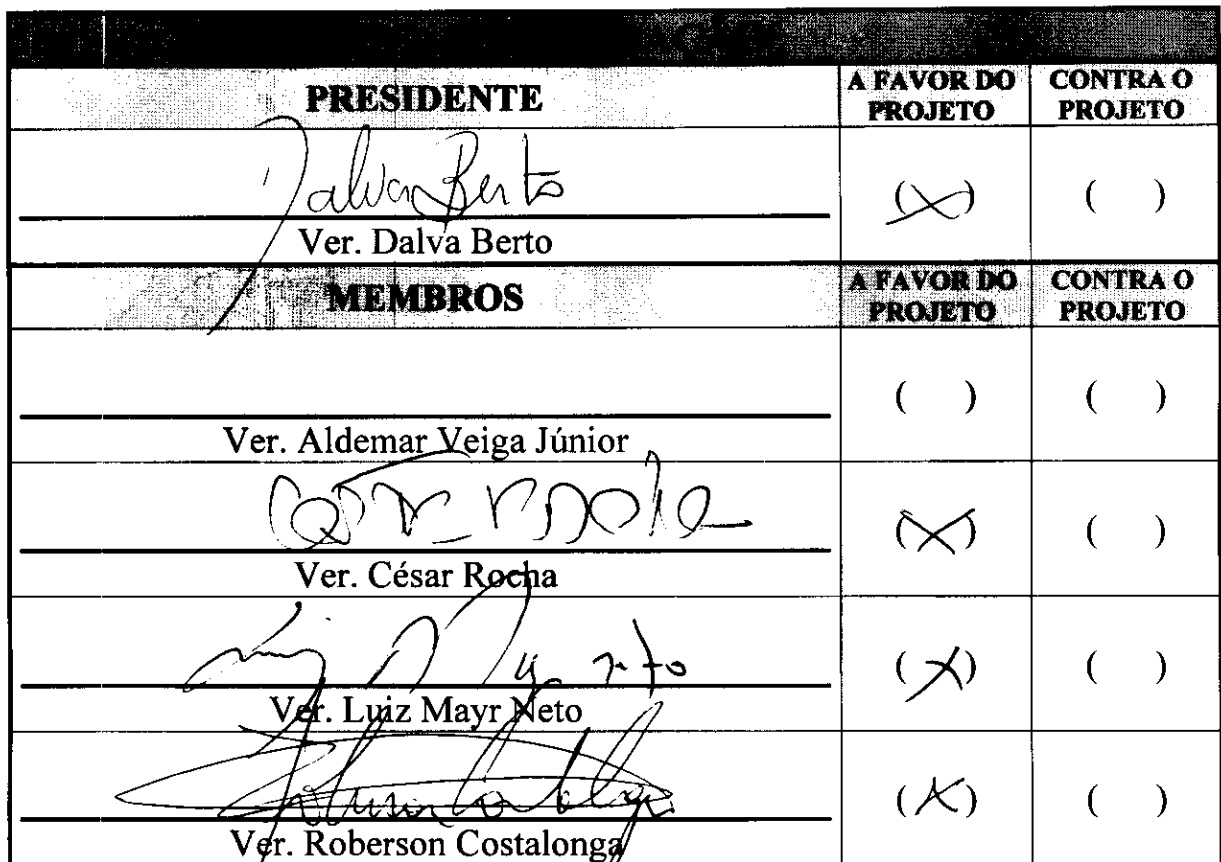 PRESIDENTE A FAVOR DO PROJETO CONTRA O PROJETO
Dalva Berto (X) ( )
Ver. Dalva Berto
MEMBROS A FAVOR DO PROJETO CONTRA O PROJETO
( ) ( )
Ver. Aldemar Veiga Júnior
(X) ( )
Ver. César Rocha
(X) ( )
Ver. Luiz Mayr Neto
(X) ( )
Ver. Roberson Costalonga